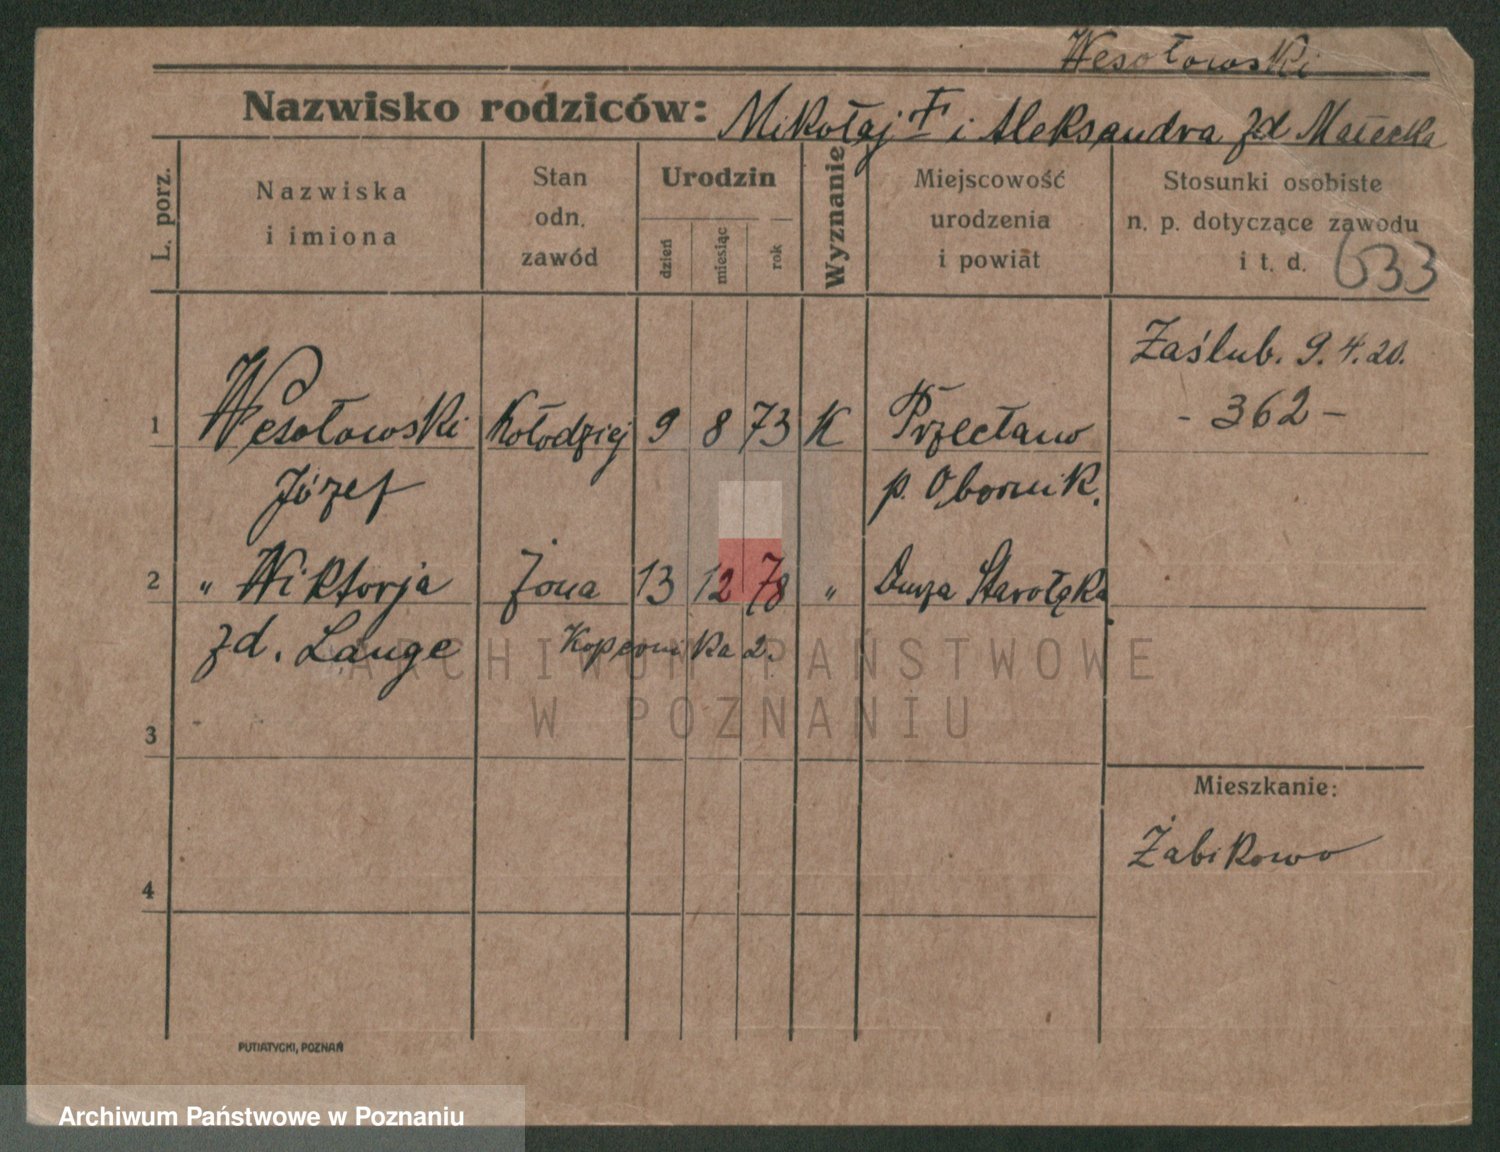 Wesołowski
Nazwisko rodziców: Mikołaj † i Aleksandra zd Małecka
L. porz.
Nazwiska i imiona
Stan odn. zawód
Urodzin
dzień
miesiąc
rok
Wyznanie
Miejscowość urodzenia i powiat
Stosunki osobiste n. p. dotyczące zawodu i t. d.
633
Zaślub. 9.4.20.
- 362 -
1 Wesołowski Kołodziej 9 8 73 K Przecławo
Józef p. Obornik.
2 " Wiktorja Żona 13 12 78 " Duża Starołęka
zd. Lange Kopernika 2.
ARCHIWUM PAŃSTWOWE
W POZNANIU
3
Mieszkanie:
Żabikowo
4
PUTIATYCKI, POZNAŃ
Archiwum Państwowe w Poznaniu